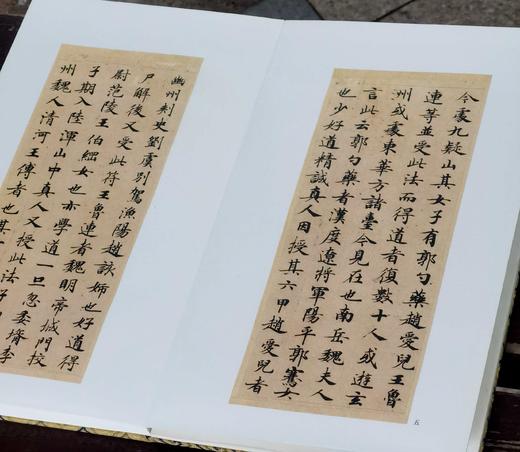 今處九疑山其女子有郭勺藥趙愛兒王魯
連等並受此法而得道者復數十人或遊玄
州或處東華方諸臺今見在也南岳魏夫人
言此云郭勺藥者漢度遼將軍陽平郭騫女
也少好道精誠真人因授其六甲趙愛兒者
五
幽州刺史劉虞別駕漁陽趙該姊也好道得
尸解後又受此符王魯連者魏明帝城門校
尉范陵王伯綱女也亦學道一旦忽委壻李
子期入陸渾山中真人又授此法子
州魏人清河王傳者也其一